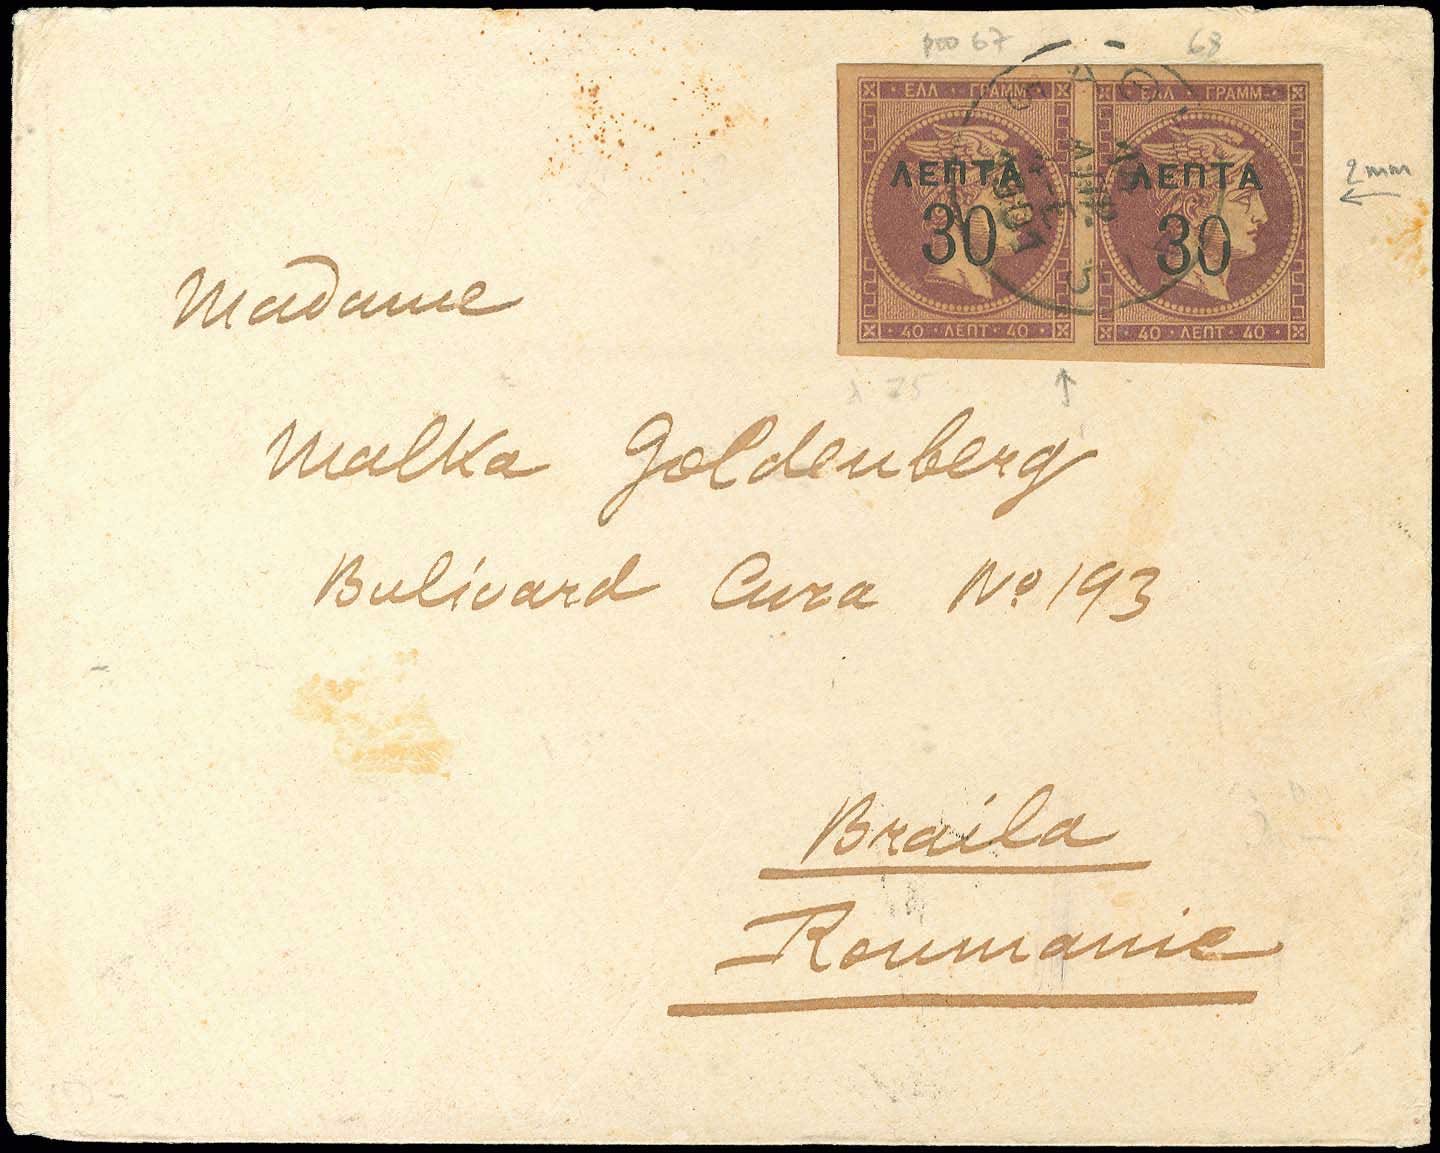 67 68
ΕΛΛ · ΓΡΑΜΜ ΕΛΛ · ΓΡΑΜΜ
2 mm
ΛΕΠΤΑ ΛΕΠΤΑ
30 30
ΑΠΡ.
1901
5
40 · ΛΕΠΤ · 40 40 · ΛΕΠΤ · 40
25
Madame
Malka Goldenberg
Bulivard Cuza No 193
Braila
Roumanie